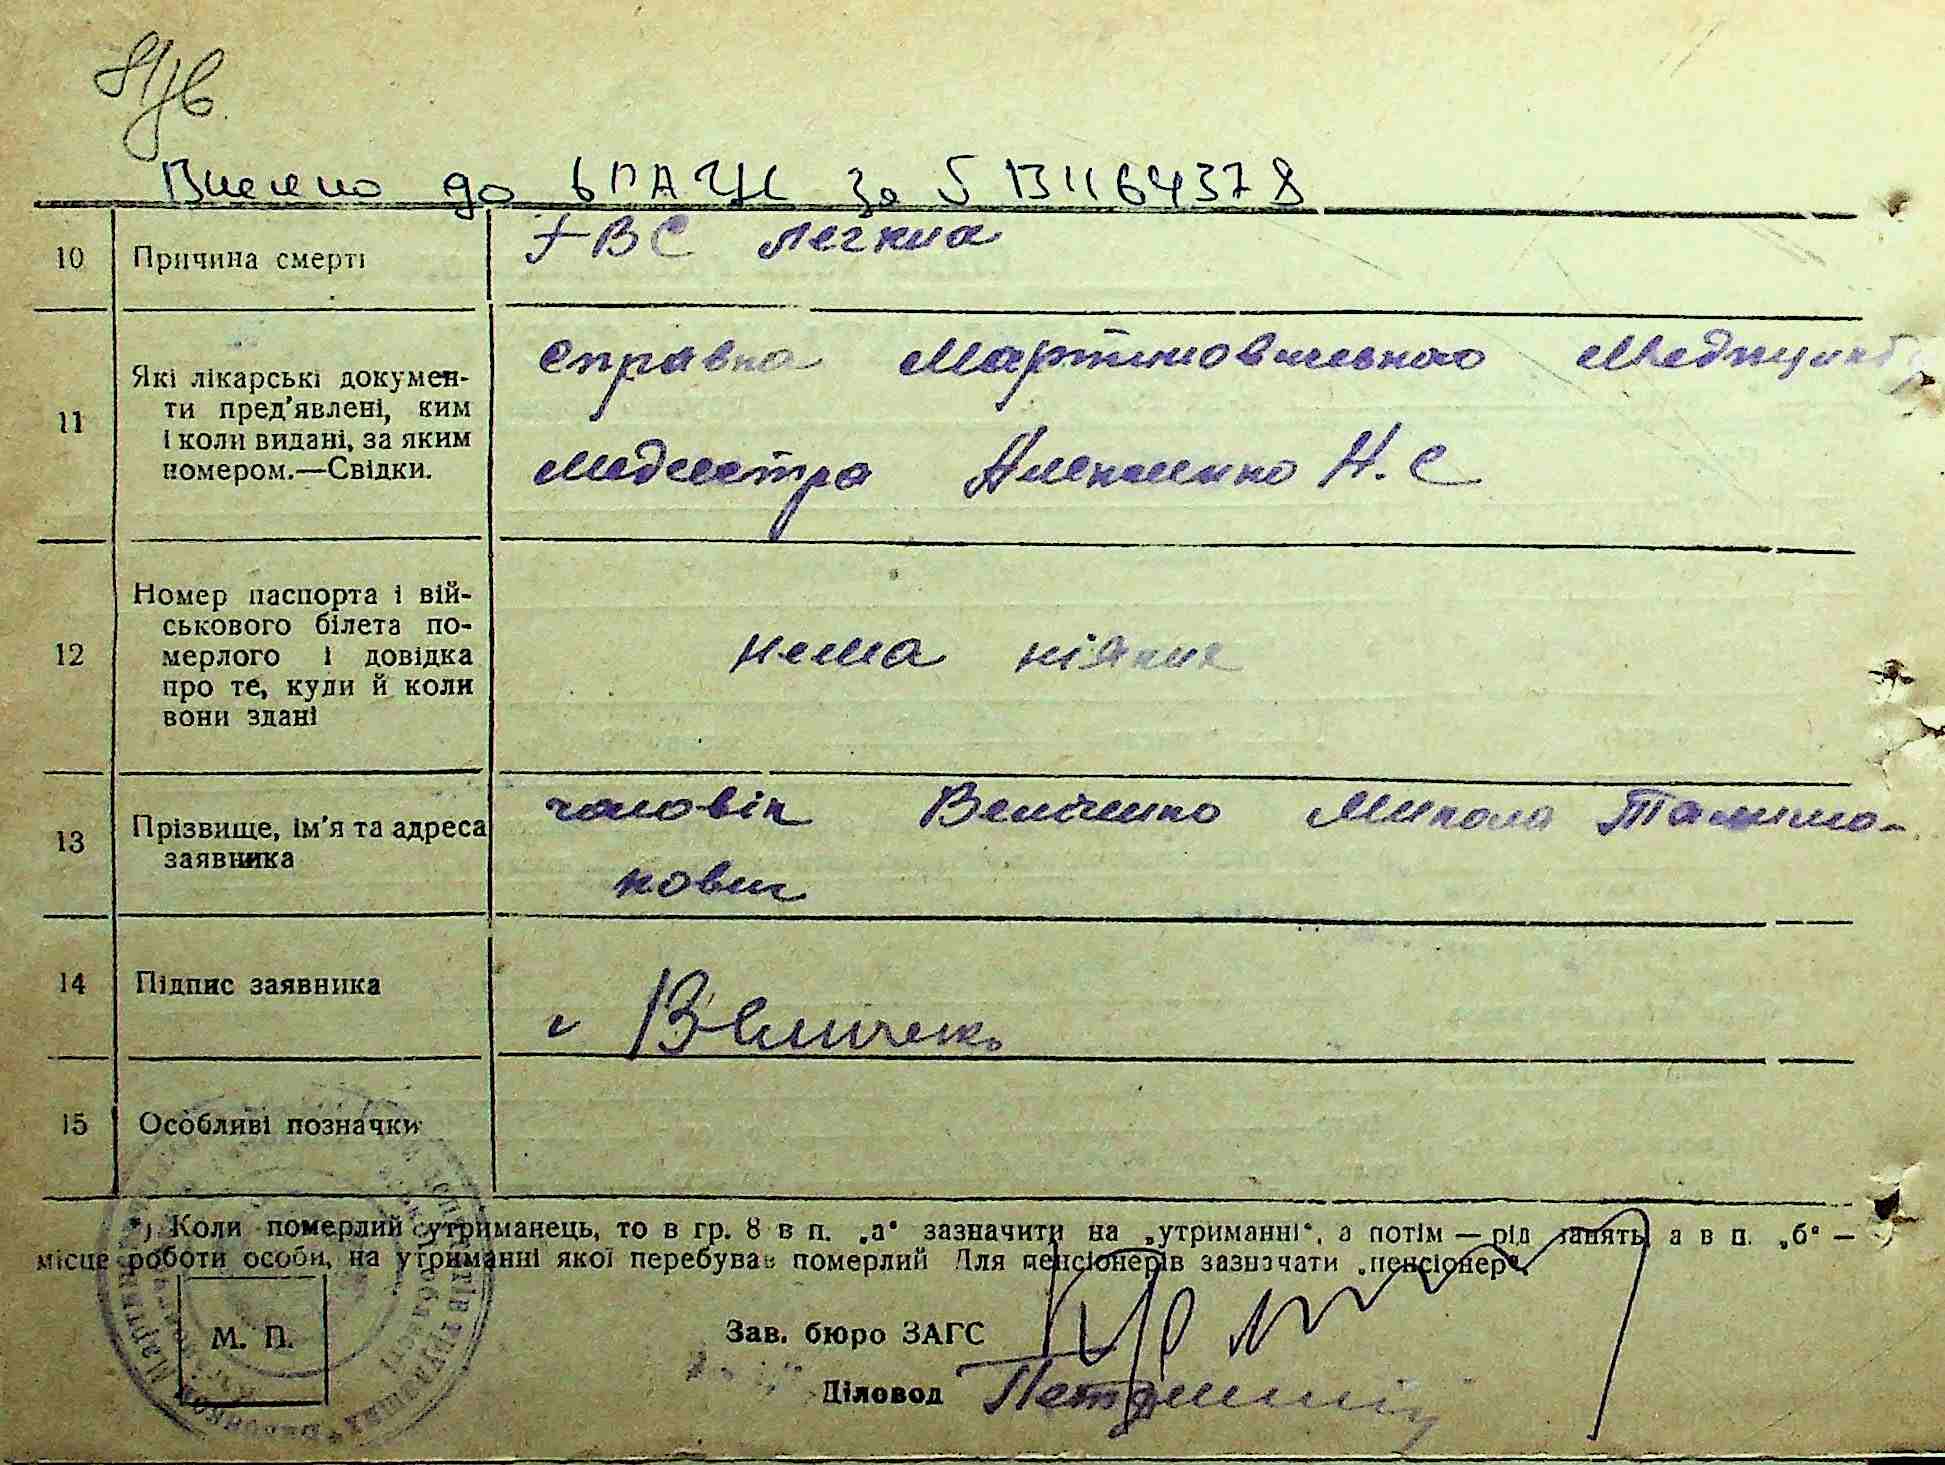 Внесено до ДРАЦС за № 13464378
10 Причина смерті ТВС легких
11 Які лікарські докумен-
ти пред'явлені, ким
і коли видані, за яким
номером.—Свідки.
справка Медпункт
медсестра Н. С
12 Номер паспорта і вій-
ськового білета по-
мерлого і довідка
про те, куди й коли
вони здані
нема ніяких
13 Прізвище, ім'я та адреса
заявника
чоловік Величенко Микола
кович
14 Підпис заявника Величенко
15 Особливі позначки
*) Коли померлий утриманець, то в гр. 8 в п. „а“ зазначити на „утриманні“, а потім — рід занять, а в п. „б“ —
місце роботи особи, на утриманні якої перебував померлий Для пенсіонерів зазначати „пенсіонер“.
М. П.
Зав. бюро ЗАГС
Діловод